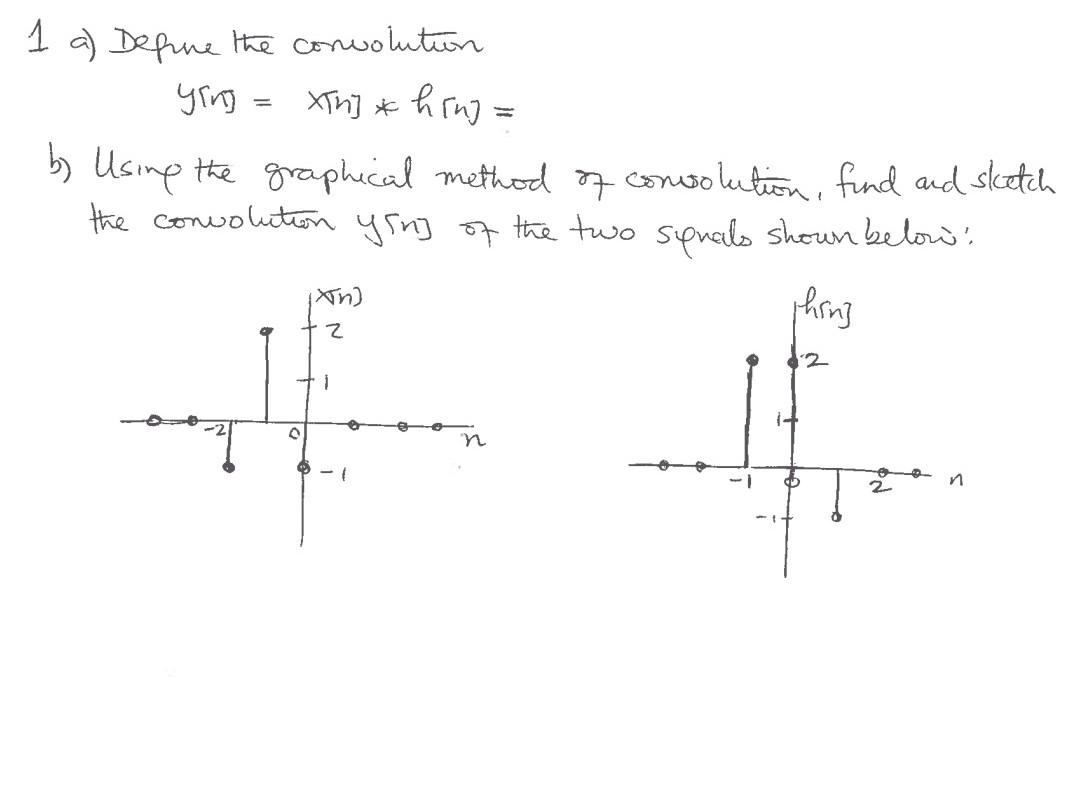 1 a) Define the convolution
y[n] = x[n] * h[n] =
b) Using the graphical method of convolution, find and sketch
the convolution y[n] of the two signals shown below:
x[n]
2
1
-2
0
n
-1
h[n]
2
1
-1
0
2
n
-1